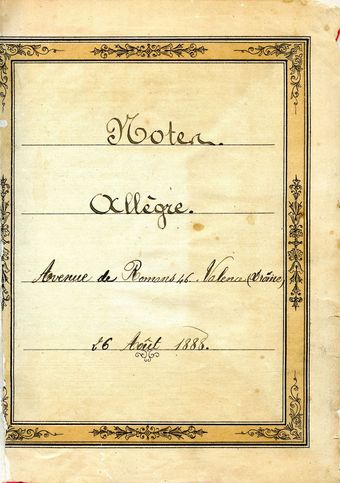 Notes.
Allègre.
Avenue de Romans 46. Valence (Drôme)
26 Août 1888.